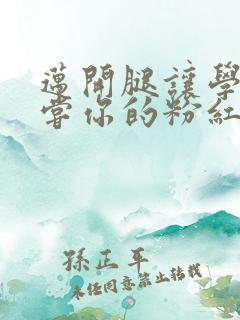 邁開腿讓學
嘗你的粉紅
孫正平
未經同意禁止轉載